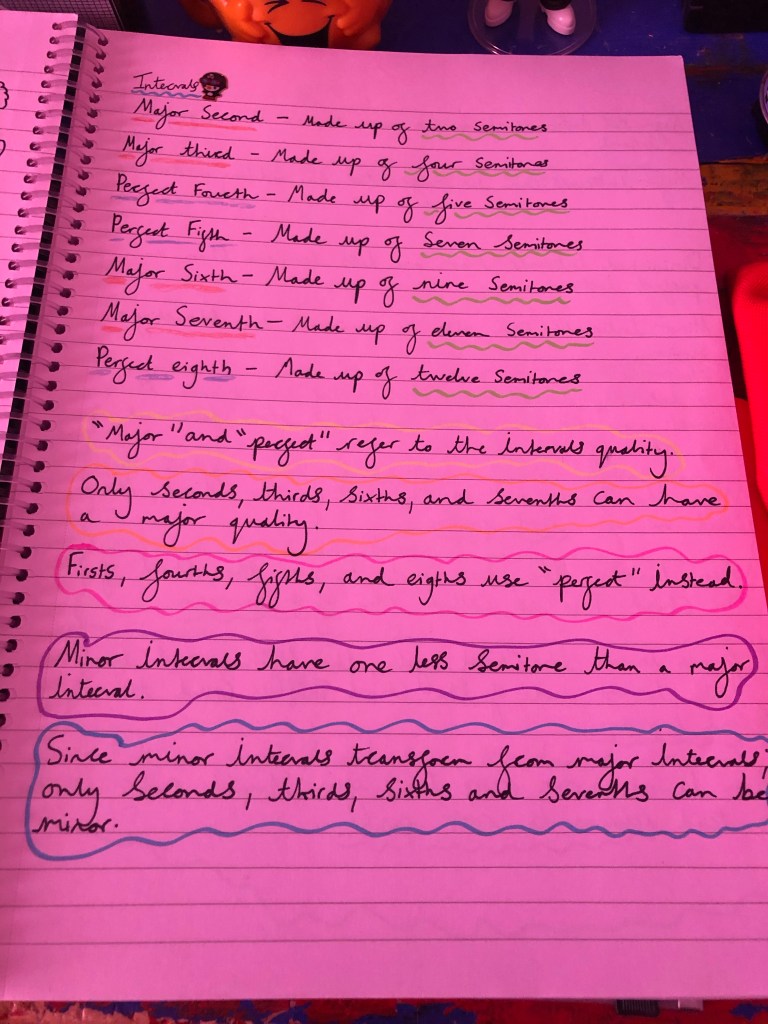 Intervals
Major Second - Made up of two Semitones
Major third - Made up of four Semitones
Perfect Fourth - Made up of five Semitones
Perfect Fifth - Made up of Seven Semitones
Major Sixth - Made up of nine Semitones
Major Seventh - Made up of eleven Semitones
Perfect eighth - Made up of twelve Semitones
"Major" and "perfect" refer to the intervals quality.
Only Seconds, thirds, Sixths, and Sevenths can have
a major quality.
Firsts, fourths, fifths, and eigths use "perfect" instead.
Minor intervals have one less Semitone than a major
interval.
Since minor intervals transform from major intervals,
only Seconds, thirds, Sixths and Sevenths can be
minor.